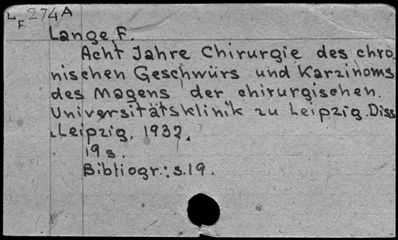 L 274A
F
Lange F.
Acht Jahre Chirurgie des chro-
nischen Geschwürs und Karzinoms
des Magens der chirurgischen.
Universitätsklinik zu Leipzig. Diss
.Leipzig, 1932.
19s.
Bibliogr.: s.19.